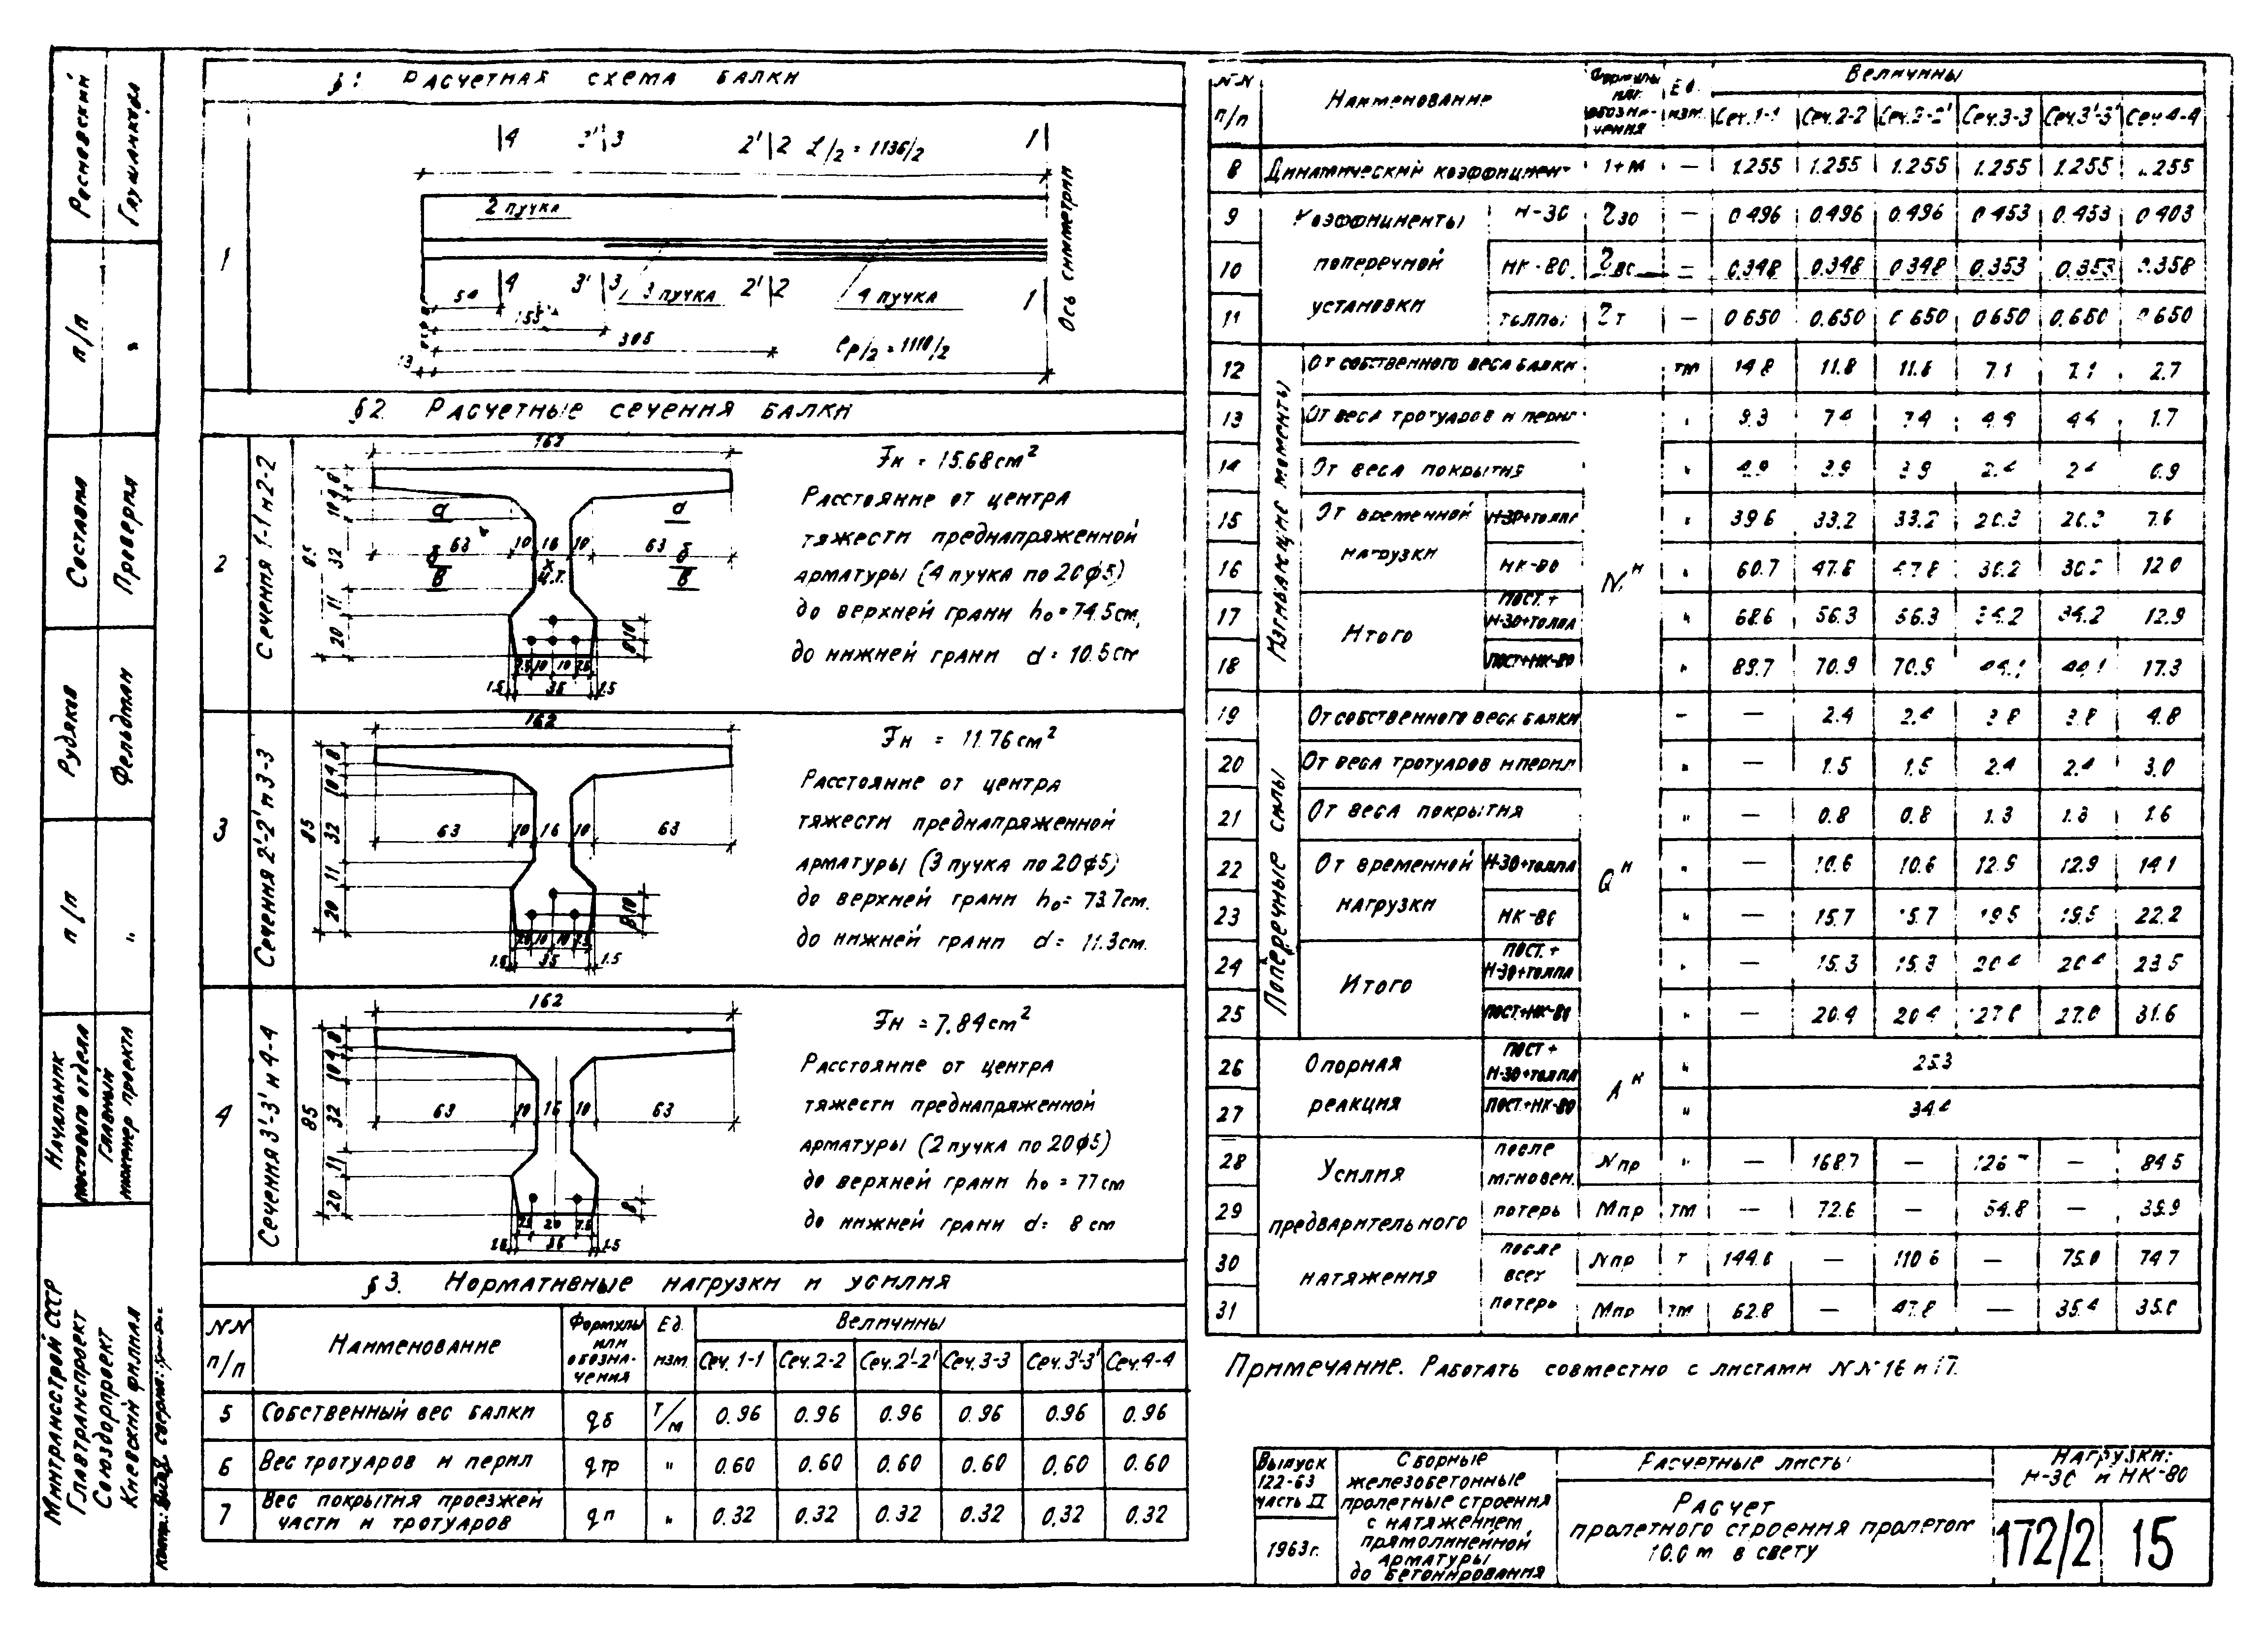 §1 Расчетная схема балки
4 3' 3 2' 2 L/2 = 1136/2 1
2 пучка
Ось симметрии
1
4 3' 3 3 пучка 2' 2 4 пучка 1
54
155
305
ℓр/2 = 1110/2
13
§2. Расчетные сечения балки
2
Сечения 1-1 и 2-2
162
10 4 8
85 32 11 20
а а
63 10 16 10 63
б б
в в
ц.т.
7.5 10 10 7.5
8 10
1.5 35 1.5
Fн = 15.68 см²
Расстояние от центра
тяжести преднапряженной
арматуры (4 пучка по 20ф5)
до верхней грани h₀ = 74.5 см,
до нижней грани d = 10.5 см
3
Сечения 2'-2' и 3-3
162
10 4 8
85 32 11 20
63 10 16 10 63
7.5 10 10 7.5
8 10
1.5 35 1.5
Fн = 11.76 см²
Расстояние от центра
тяжести преднапряженной
арматуры (3 пучка по 20ф5)
до верхней грани h₀ = 73.7 см.
до нижней грани d = 11.3 см.
4
Сечения 3'-3' и 4-4
162
10 4 8
85 32 11 20
63 10 16 10 63
7.5 20 7.5
8
1.5 35 1.5
Fн = 7.84 см²
Расстояние от центра
тяжести преднапряженной
арматуры (2 пучка по 20ф5)
до верхней грани h₀ = 77 см
до нижней грани d = 8 см
§3. Нормативные нагрузки и усилия
NN п/п Наименование Формулы или обозначения Ед. изм. Величины
Сеч. 1-1 Сеч. 2-2 Сеч. 2'-2' Сеч. 3-3 Сеч. 3'-3' Сеч. 4-4
5 Собственный вес балки qб т/м 0.96 0.96 0.96 0.96 0.96 0.96
6 Вес тротуаров и перил qтр " 0.60 0.60 0.60 0.60 0.60 0.60
7 Вес покрытия проезжей
части и тротуаров qп " 0.32 0.32 0.32 0.32 0.32 0.32
NN п/п Наименование Формулы или обозначения Ед. изм. Величины
Сеч. 1-1 Сеч. 2-2 Сеч. 2'-2' Сеч. 3-3 Сеч. 3'-3' Сеч. 4-4
8 Динамический коэффициент 1+М — 1.255 1.255 1.255 1.255 1.255 1.255
Коэффициенты поперечной установки
9 Н-30 η30 — 0.496 0.496 0.496 0.453 0.453 0.403
10 НК-80 η80 — 0.348 0.348 0.348 0.353 0.353 0.358
11 толпы ηт — 0.650 0.650 0.650 0.650 0.650 0.650
Изгибающие моменты
12 От собственного веса балки тм 14.8 11.8 11.8 7.1 7.1 2.7
13 От веса тротуаров и перил " 9.3 7.4 7.4 4.4 4.4 1.7
14 От веса покрытия " 4.9 3.9 3.9 2.4 2.4 0.9
От временной нагрузки
15 Н-30+толпа " 39.6 33.2 33.2 20.3 20.3 7.6
16 НК-80 " 60.7 47.8 47.8 30.2 30.2 12.0
Итого
17 пост.+ Н-30+толпа " 68.6 56.3 56.3 34.2 34.2 12.9
18 пост+НК-80 " 89.7 70.9 70.9 44.1 44.1 17.3
Поперечные силы
19 От собственного веса балки — 2.4 2.4 3.8 3.8 4.8
20 От веса тротуаров и перил " — 1.5 1.5 2.4 2.4 3.0
21 От веса покрытия " — 0.8 0.8 1.3 1.3 1.6
От временной нагрузки Qн
22 Н-30+толпа " — 10.6 10.6 12.9 12.9 14.1
23 НК-80 " — 15.7 15.7 19.5 19.5 22.2
Итого
24 пост.+ Н-30+толпа " — 15.3 15.3 20.4 20.4 23.5
25 пост.+НК-80 " — 20.4 20.4 27.0 27.0 31.6
Опорная реакция Aн
26 пост + Н-30+толпа " 25.3
27 пост.+НК-80 " 34.4
Усилия предварительного натяжения
28 после мгновен. Nпр " — 168.7 — 126.7 — 84.5
29 потерь Мпр тм — 72.6 — 54.8 — 39.9
30 после всех Nпр т 144.6 — 110.6 — 75.0 74.7
31 потерь Мпр тм 62.8 — 47.8 — 35.4 35.0
Примечание. Работать совместно с листами NN 16 и 17.
Выпуск
122-63
часть II
1963г.
Сборные
железобетонные
пролетные строения
с натяжением
прямолинейной
арматуры
до бетонирования
Расчетные листы
Расчет
пролетного строения пролетом
10.0 м в свету
Нагрузки:
Н-30 и НК-80
172/2
15
Минтрансстрой СССР
Главтранспроект
Союздорпроект
Киевский филиал
Начальник
мостового отдела
Главный
инженер проекта
п/п
"
Рудяков
Фельдман
Составил
Проверил
п/п
"
Росновский
Глушанкова